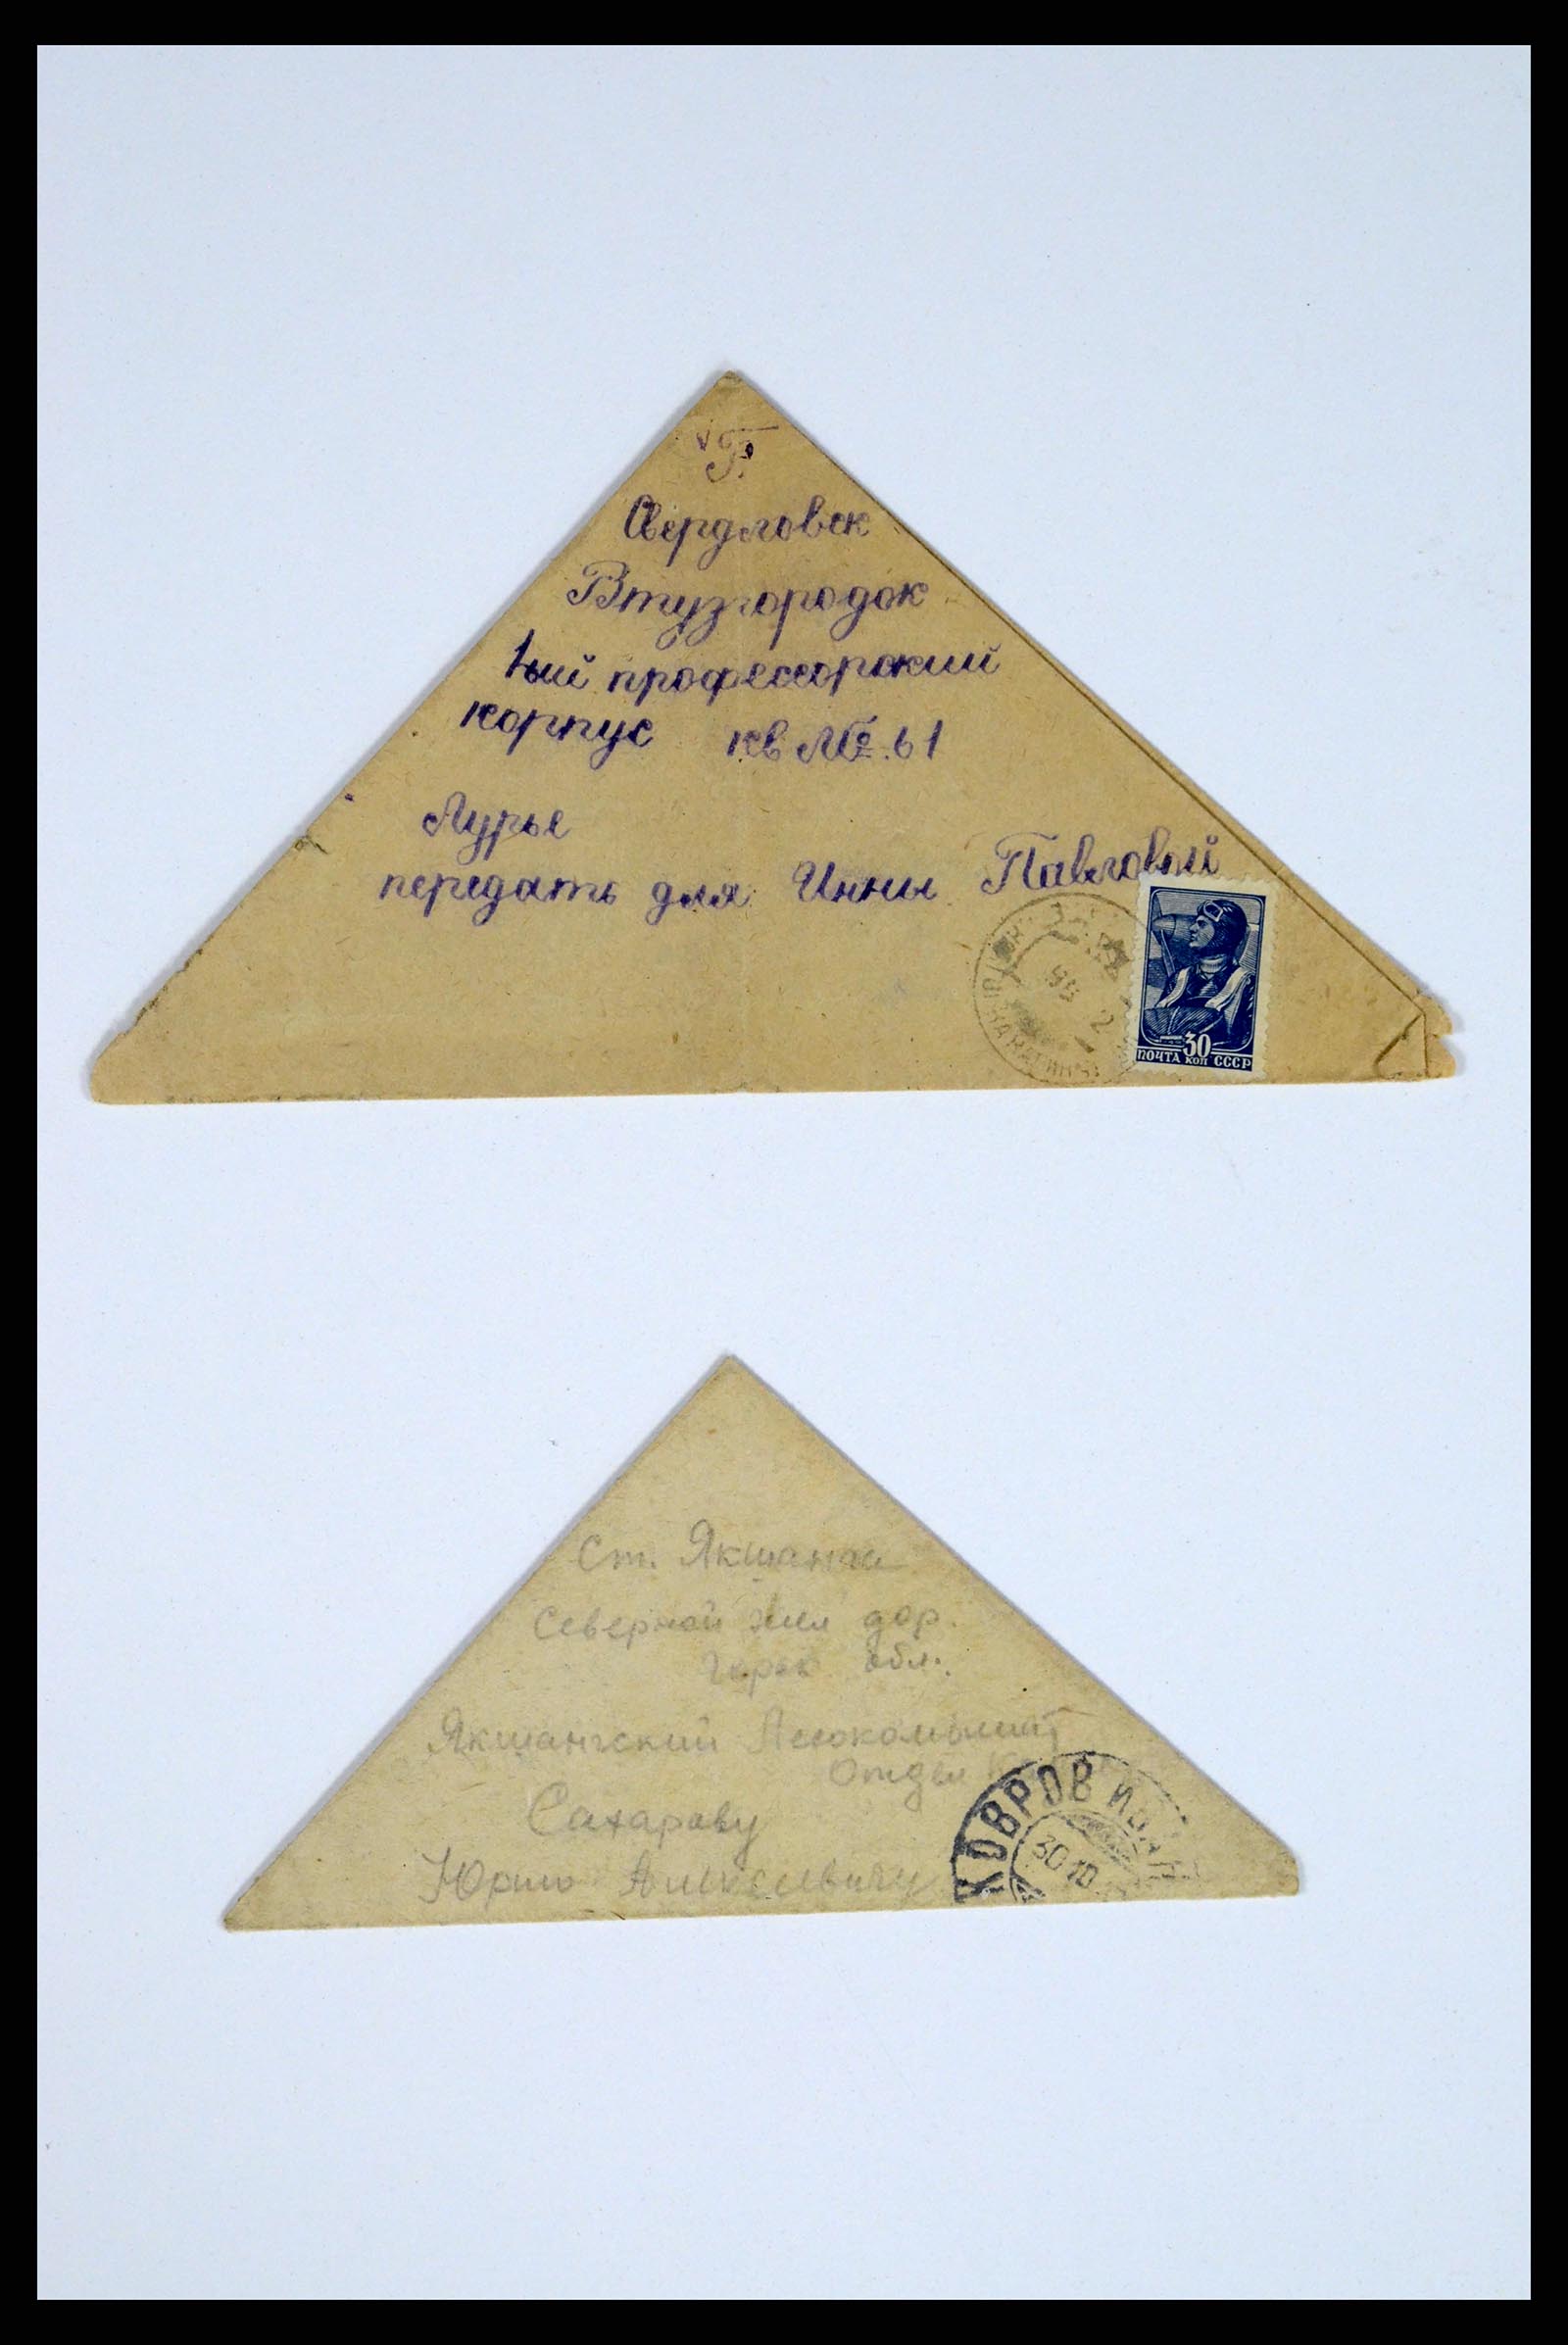 г.
Свердловск
Втузгородок
1ый профессорский
корпус кв № 61
Лурье
передать для Инны Павловой
30
ПОЧТА КОП СССР
Ст. Якшанга
Северной жел дор.
Горьк обл.
Якшангский Лесокомбинат
Отдел
Сахарову
Юрию Алексеевичу
КОВРОВ
30 10